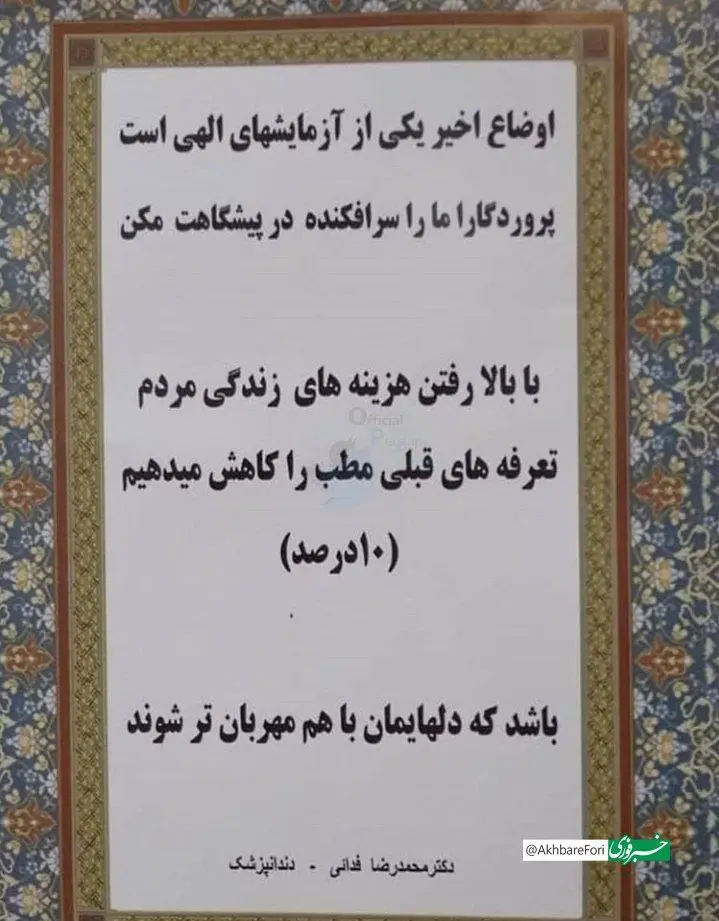 اوضاع اخیر یکی از آزمایشهای الهی است
پروردگارا ما را سرافکنده در پیشگاهت مکن
با بالا رفتن هزینه های زندگی مردم
Official
Persian
تعرفه های قبلی مطب را کاهش میدهیم
(۱۰درصد)
باشد که دلهایمان با هم مهربان تر شوند
دکترمحمدرضا فدائی - دندانپزشک
@AkhbareFori خبرفوری